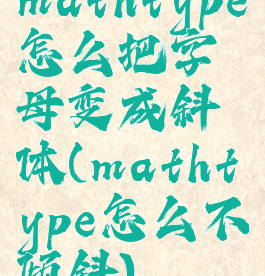 mathtype
怎么把字
母变成斜
体(matht
ype怎么不
倾斜)